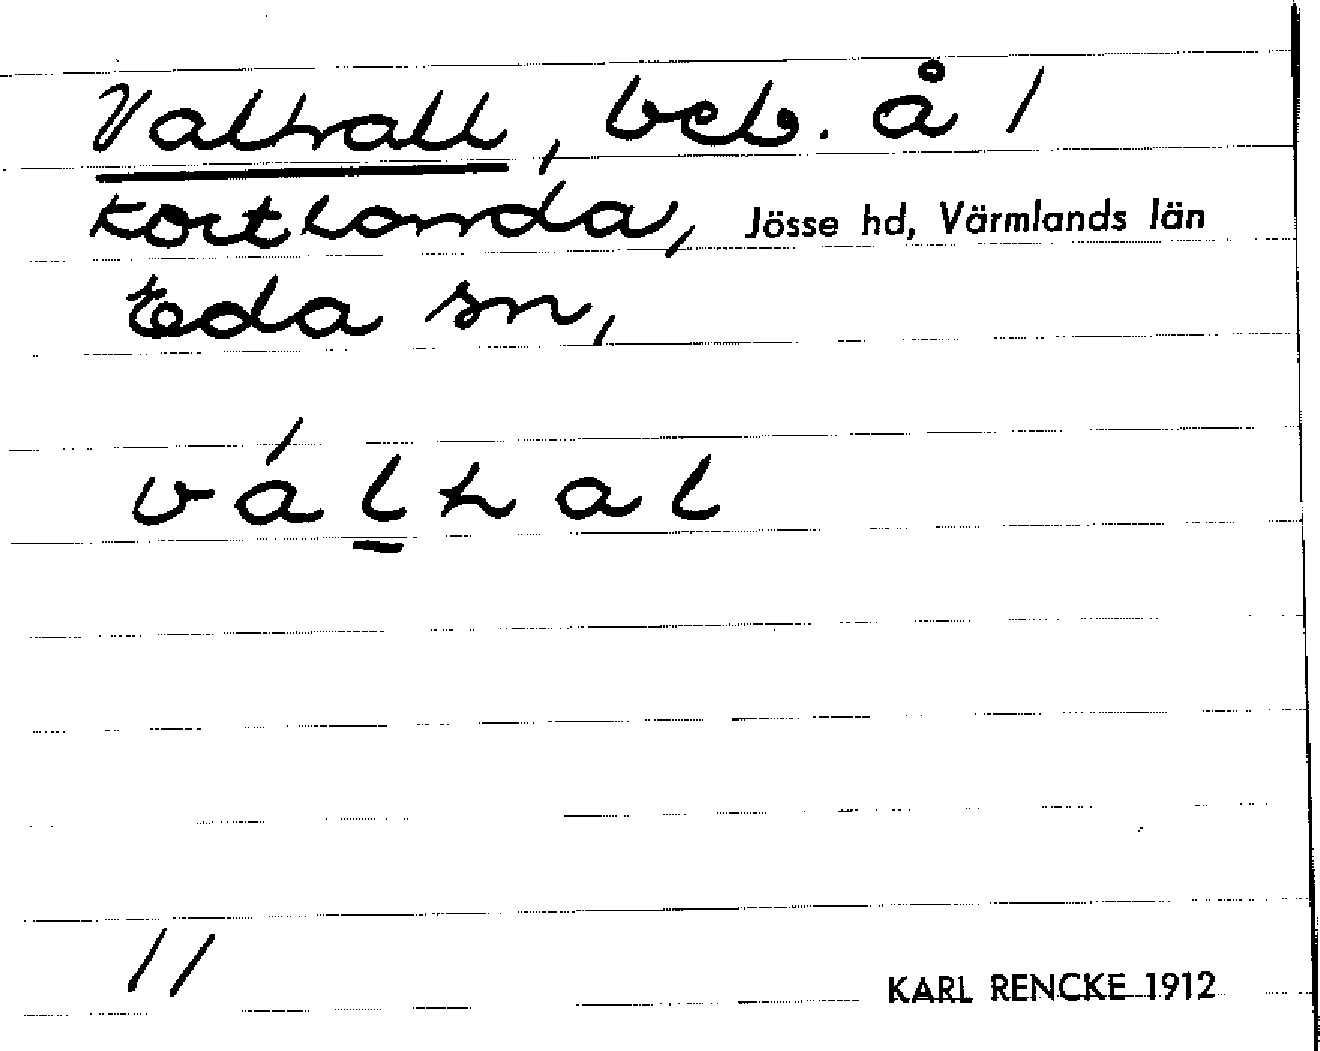 Valhall, beb. å /
Kortlanda, Jösse hd, Värmlands län
Eda sn,
válhal
11
KARL RENCKE 1912